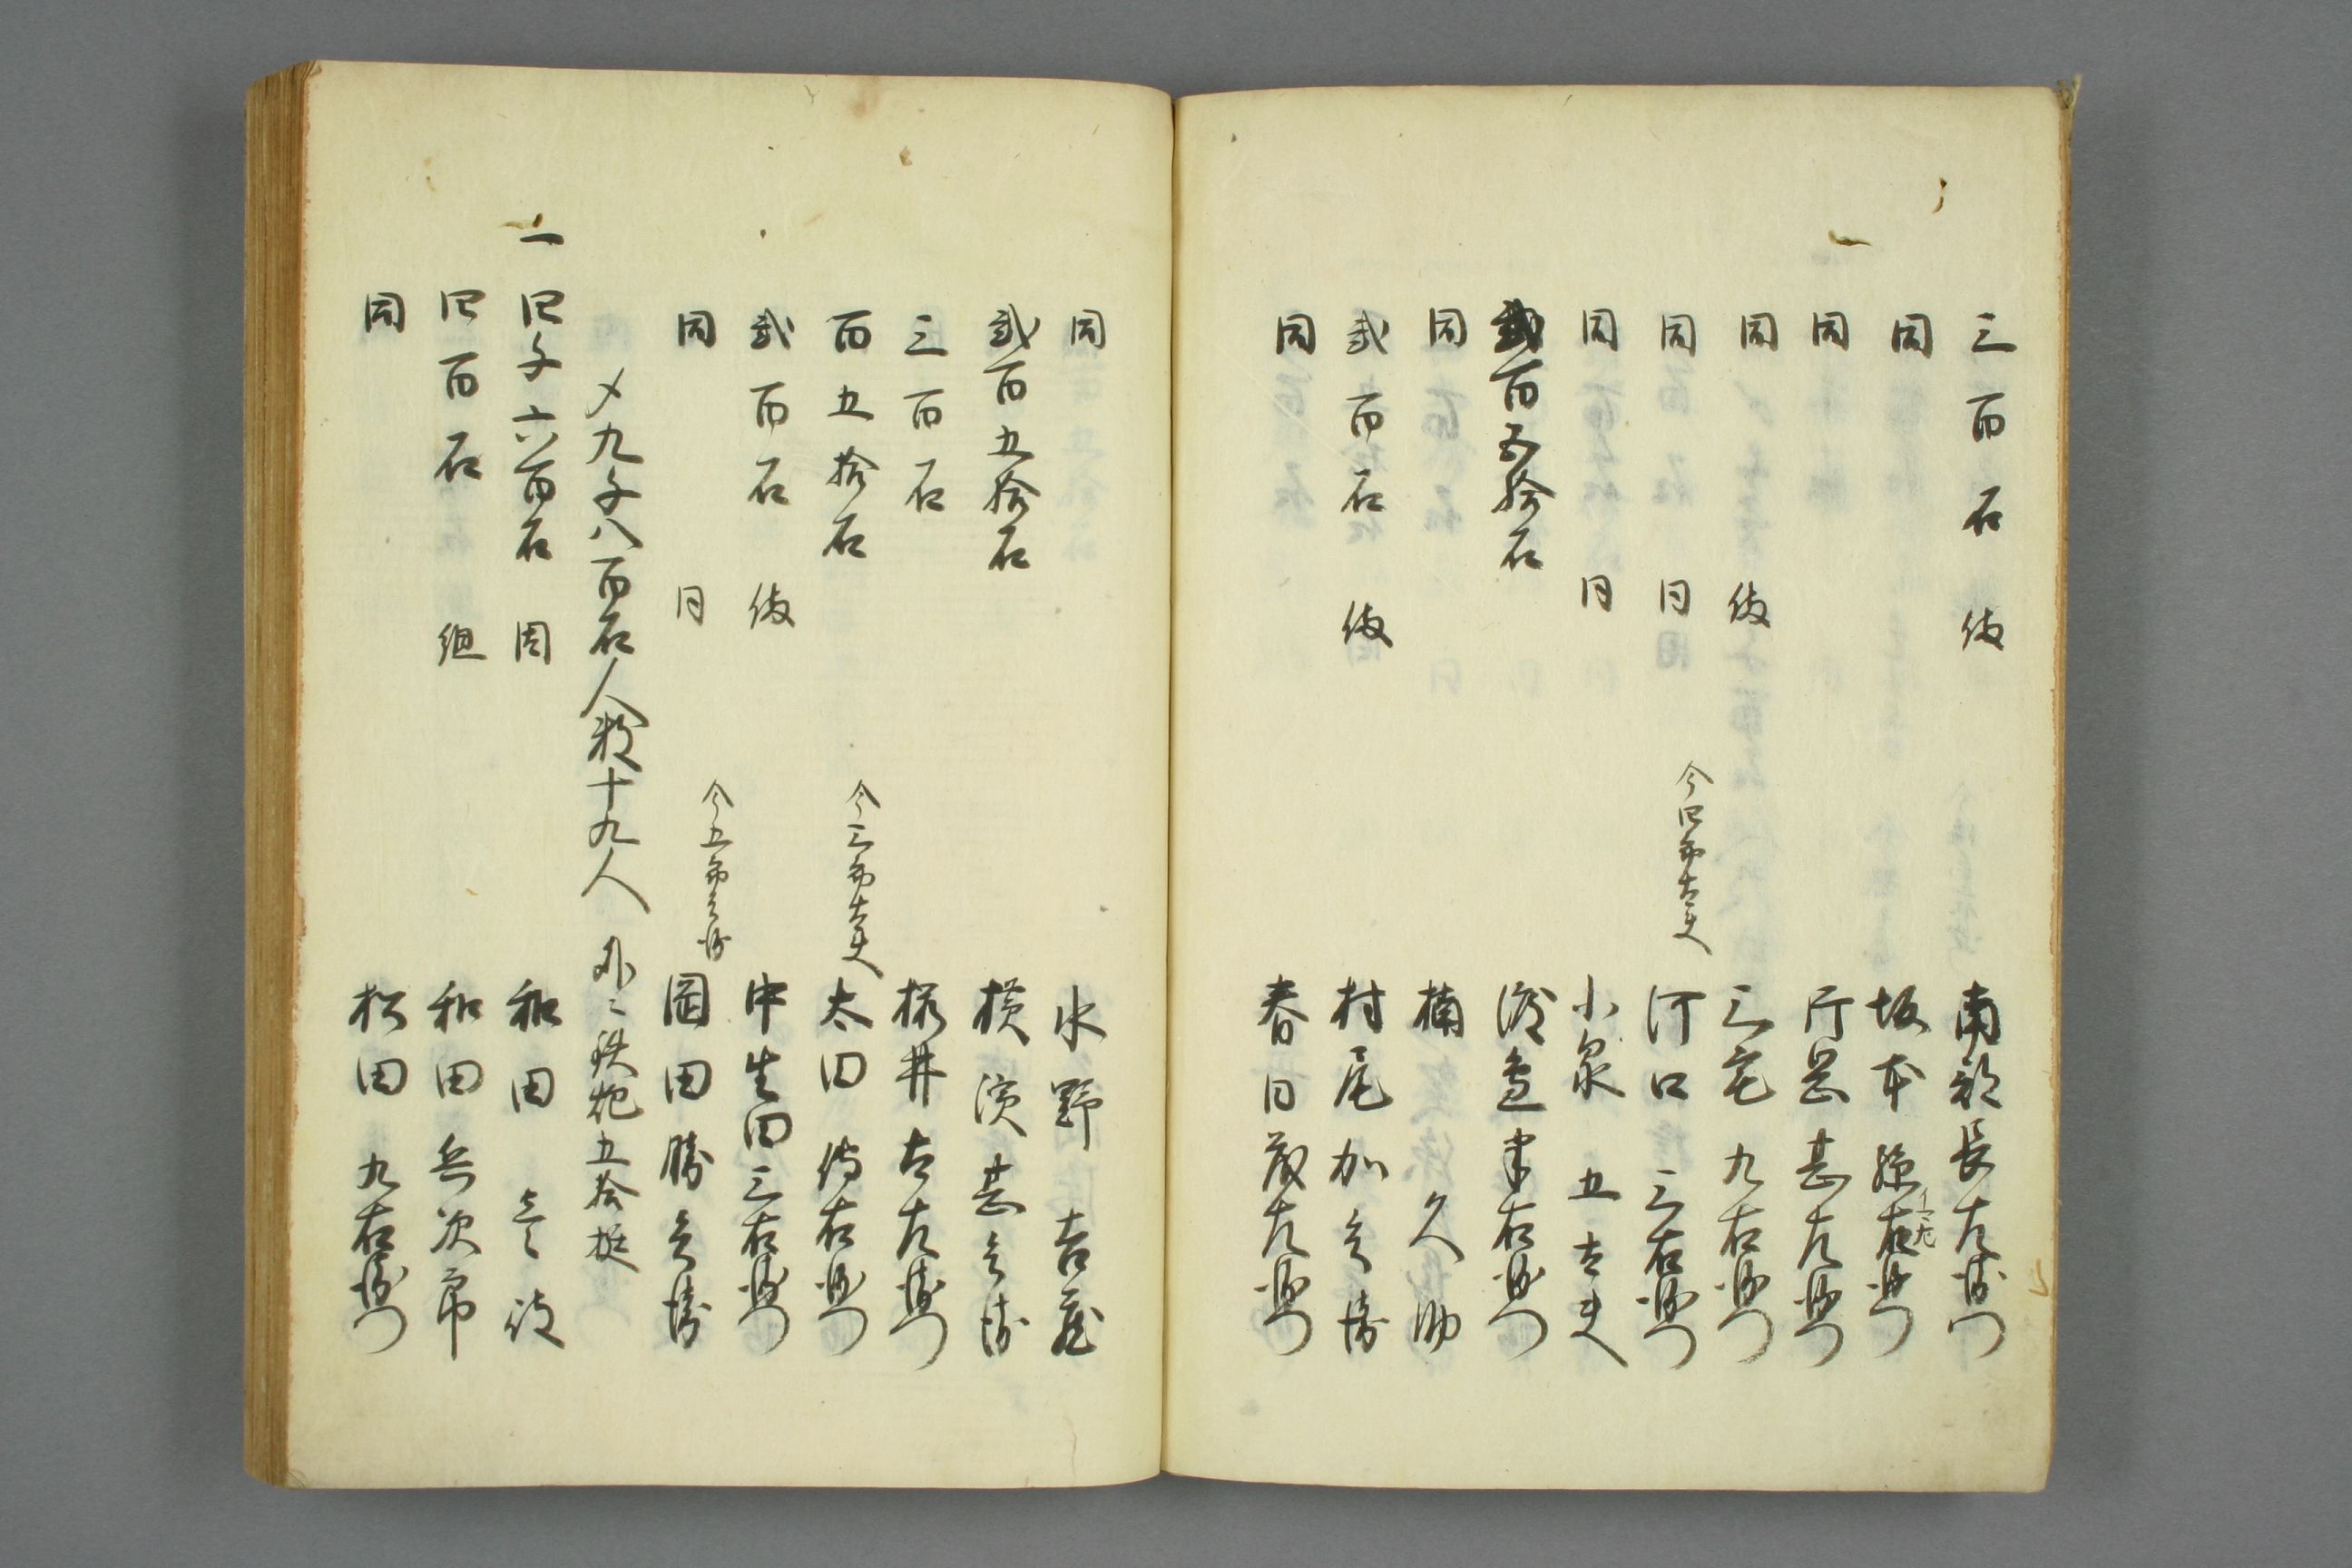 三百石 備 南部長左衛門
同 坂本孫右衛門
同 片岡甚左衛門
同 備 三宅九右衛門
同 同 周 今四郎太夫 河口三右衛門
同 同 小泉五太夫
貳百五拾石 渡邉半右衛門
同 楠 久助
貳百石 備 村尾加兵衛
同 春日茂左衛門
同 水野吉蔵
貳百五拾石 横濱甚兵衛
三百石 桜井太左衛門
百五拾石 今三郎太夫 太田傳右衛門
貳百石 備 中生田三右衛門
同 同 今五郎兵衛 園田勝兵衛
〆九千八百石 人数十九人 外ニ鉄炮五拾挺
一 四千六百石 周 和田
四百石 組 和田兵次郎
同 松田九右衛門